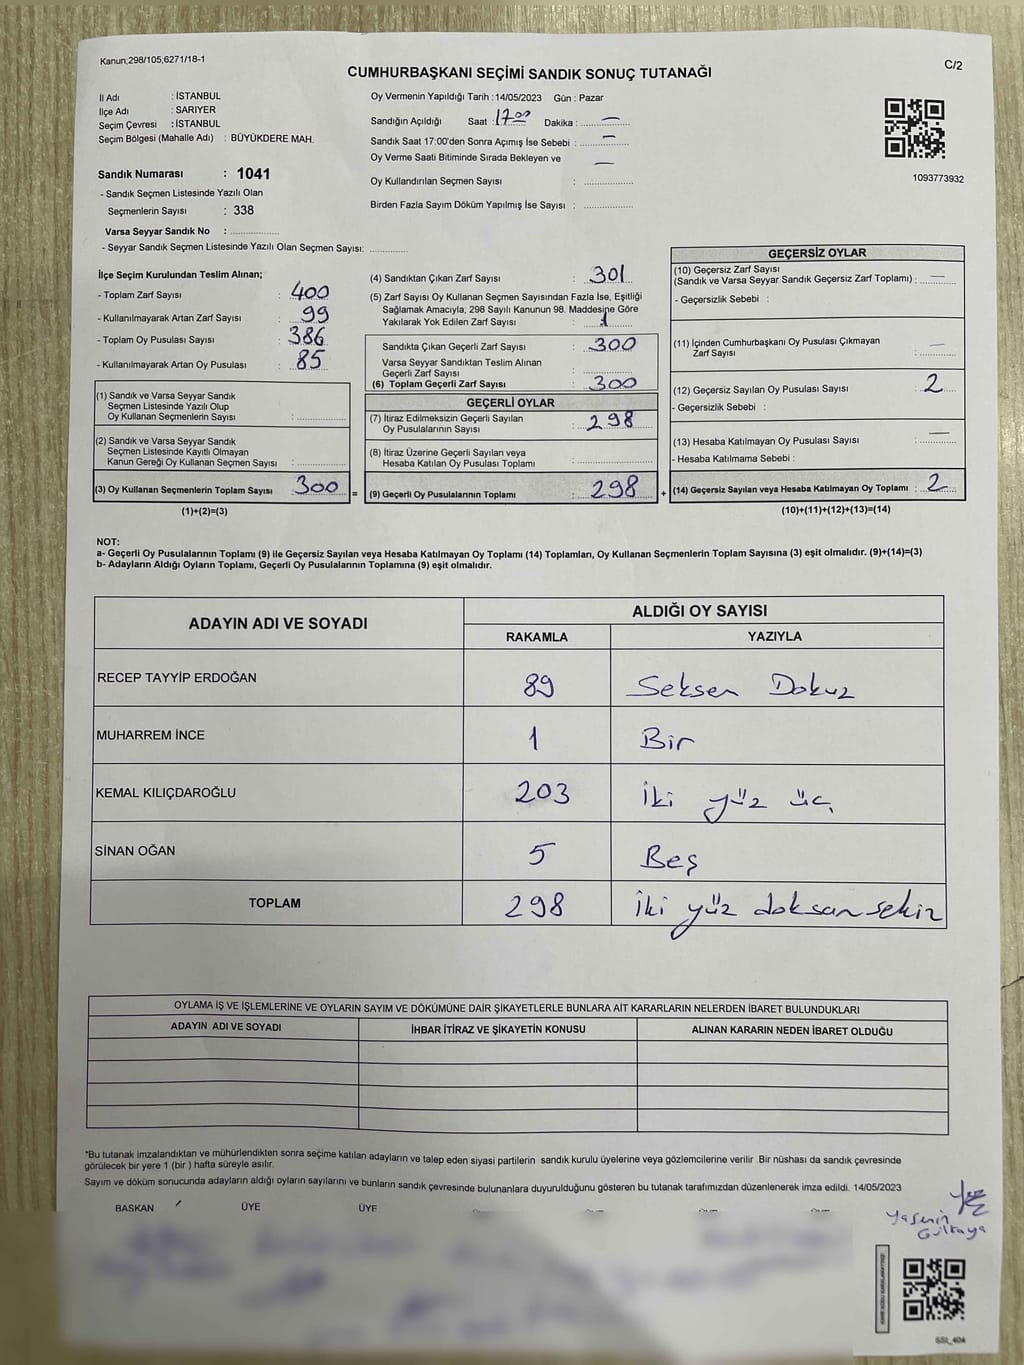 Kanun;298/105;6271/18-1
C/2
CUMHURBAŞKANI SEÇİMİ SANDIK SONUÇ TUTANAĞI
İl Adı : İSTANBUL
İlçe Adı : SARIYER
Seçim Çevresi : İSTANBUL
Seçim Bölgesi (Mahalle Adı) : BÜYÜKDERE MAH.
Oy Vermenin Yapıldığı Tarih : 14/05/2023 Gün : Pazar
Sandığın Açıldığı Saat : 17.00 Dakika : —
Sandık Saat 17:00'den Sonra Açımış İse Sebebi : —
Oy Verme Saati Bitiminde Sırada Bekleyen ve —
Oy Kullandırılan Seçmen Sayısı :
Birden Fazla Sayım Döküm Yapılmış İse Sayısı :
1093773932
Sandık Numarası : 1041
- Sandık Seçmen Listesinde Yazılı Olan
Seçmenlerin Sayısı : 338
Varsa Seyyar Sandık No :
- Seyyar Sandık Seçmen Listesinde Yazılı Olan Seçmen Sayısı:
İlçe Seçim Kurulundan Teslim Alınan;
- Toplam Zarf Sayısı : 400
- Kullanılmayarak Artan Zarf Sayısı : 99
- Toplam Oy Pusulası Sayısı : 386
- Kullanılmayarak Artan Oy Pusulası : 85
(1) Sandık ve Varsa Seyyar Sandık
Seçmen Listesinde Yazılı Olup
Oy Kullanan Seçmenlerin Sayısı :
(2) Sandık ve Varsa Seyyar Sandık
Seçmen Listesinde Kayıtlı Olmayan
Kanun Gereği Oy Kullanan Seçmen Sayısı :
(3) Oy Kullanan Seçmenlerin Toplam Sayısı : 300
(1)+(2)=(3)
=
(4) Sandıktan Çıkan Zarf Sayısı : 301
(5) Zarf Sayısı Oy Kullanan Seçmen Sayısından Fazla İse, Eşitliği
Sağlamak Amacıyla; 298 Sayılı Kanunun 98. Maddesine Göre
Yakılarak Yok Edilen Zarf Sayısı : 1
Sandıkta Çıkan Geçerli Zarf Sayısı : 300
Varsa Seyyar Sandıktan Teslim Alınan
Geçerli Zarf Sayısı :
(6) Toplam Geçerli Zarf Sayısı : 300
GEÇERLİ OYLAR
(7) İtiraz Edilmeksizin Geçerli Sayılan
Oy Pusulalarının Sayısı : 298
(8) İtiraz Üzerine Geçerli Sayılan veya
Hesaba Katılan Oy Pusulası Toplamı :
(9) Geçerli Oy Pusulalarının Toplamı : 298
+
GEÇERSİZ OYLAR
(10) Geçersiz Zarf Sayısı
(Sandık ve Varsa Seyyar Sandık Geçersiz Zarf Toplamı) : —
- Geçersizlik Sebebi :
(11) İçinden Cumhurbaşkanı Oy Pusulası Çıkmayan —
Zarf Sayısı :
(12) Geçersiz Sayılan Oy Pusulası Sayısı : 2
- Geçersizlik Sebebi :
(13) Hesaba Katılmayan Oy Pusulası Sayısı : —
- Hesaba Katılmama Sebebi :
(14) Geçersiz Sayılan veya Hesaba Katılmayan Oy Toplamı : 2
(10)+(11)+(12)+(13)=(14)
NOT:
a- Geçerli Oy Pusulalarının Toplamı (9) ile Geçersiz Sayılan veya Hesaba Katılmayan Oy Toplamı (14) Toplamları, Oy Kullanan Seçmenlerin Toplam Sayısına (3) eşit olmalıdır. (9)+(14)=(3)
b- Adayların Aldığı Oyların Toplamı, Geçerli Oy Pusulalarının Toplamına (9) eşit olmalıdır.
ADAYIN ADI VE SOYADI
ALDIĞI OY SAYISI
RAKAMLA YAZIYLA
RECEP TAYYİP ERDOĞAN 89 Seksen Dokuz
MUHARREM İNCE 1 Bir
KEMAL KILIÇDAROĞLU 203 iki yüz üç
SİNAN OĞAN 5 Beş
TOPLAM 298 iki yüz doksan sekiz
OYLAMA İŞ VE İŞLEMLERİNE VE OYLARIN SAYIM VE DÖKÜMÜNE DAİR ŞİKAYETLERLE BUNLARA AİT KARARLARIN NELERDEN İBARET BULUNDUKLARI
ADAYIN ADI VE SOYADI İHBAR İTİRAZ VE ŞİKAYETİN KONUSU ALINAN KARARIN NEDEN İBARET OLDUĞU
*Bu tutanak imzalandıktan ve mühürlendikten sonra seçime katılan adayların ve talep eden siyasi partilerin sandık kurulu üyelerine veya gözlemcilerine verilir .Bir nüshası da sandık çevresinde
görülecek bir yere 1 (bir ) hafta süreyle asılır.
Sayım ve döküm sonucunda adayların aldığı oyların sayılarını ve bunların sandık çevresinde bulunanlara duyurulduğunu gösteren bu tutanak tarafımızdan düzenlenerek imza edildi. 14/05/2023
BAŞKAN ÜYE ÜYE
Yasemin
Gülkaya